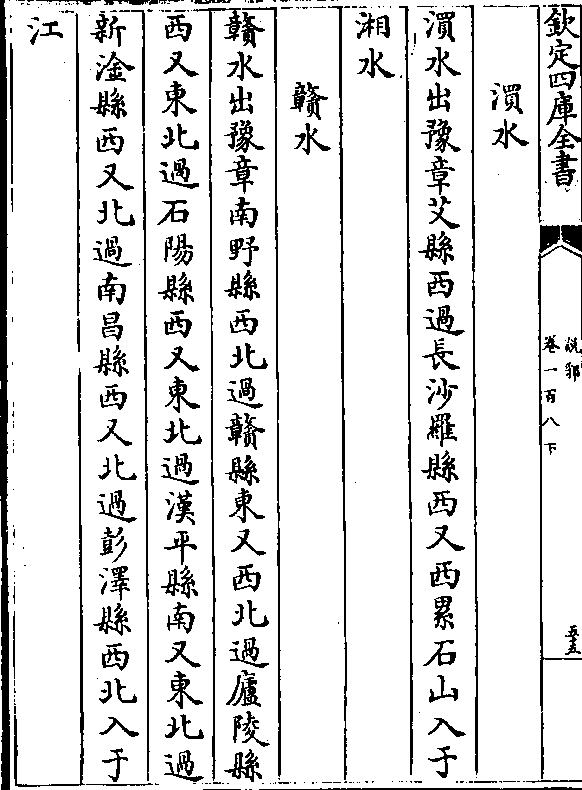 欽定四庫全書
說郛
卷一百八下
五五
溳水
溳水出豫章艾縣西過長沙羅縣西又西累石山入于
湘水
贛水
贛水出豫章南野縣西北過贛縣東又西北過廬陵縣
西又東北過石陽縣西又東北過漢平縣南又東北過
新淦縣西又北過南昌縣西又北過彭澤縣西北入于
江